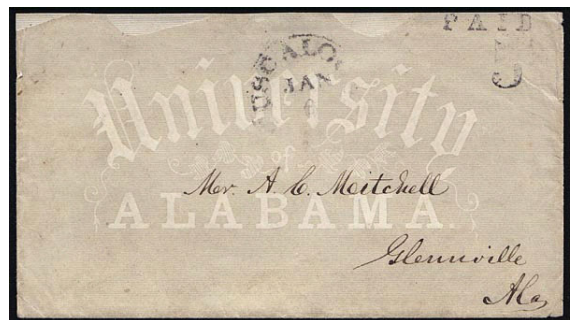 PAID
5
TUSCALOO
JAN
University
of
ALABAMA.
Mr. A. C. Mitchell
Glennville
Ala